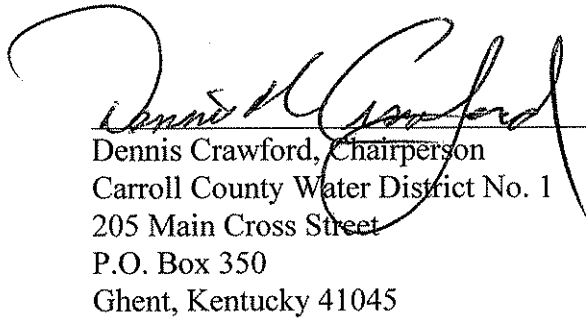 Dennis M Crawford
Dennis Crawford, Chairperson
Carroll County Water District No. 1
205 Main Cross Street
P.O. Box 350
Ghent, Kentucky 41045